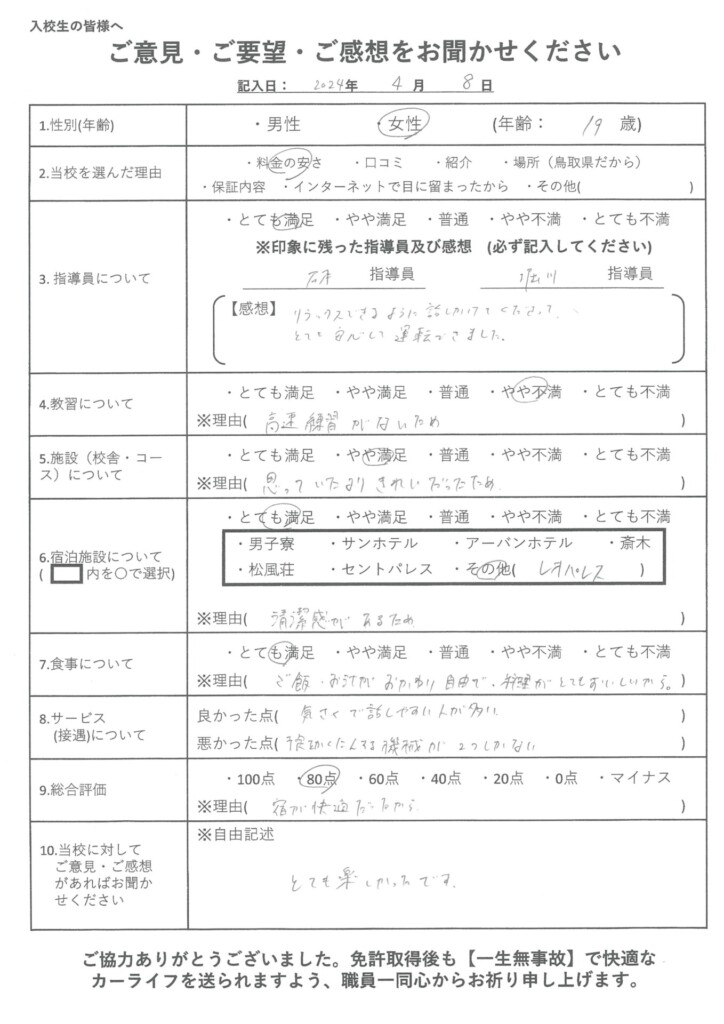 入校生の皆様へ
ご意見・ご要望・ご感想をお聞かせください
記入日： 2024年 4月 8日
1.性別(年齢) ・男性 ・女性 (年齢： 19 歳)
2.当校を選んだ理由 ・料金の安さ ・口コミ ・紹介 ・場所（鳥取県だから）
・保証内容 ・インターネットで目に留まったから ・その他( )
3. 指導員について ・とても満足 ・やや満足 ・普通 ・やや不満 ・とても不満
※印象に残った指導員及び感想 (必ず記入してください)
指導員 堀川 指導員
【感想】 リラックスできるように話しかけてくださって、
とても安心して運転できました。
4.教習について ・とても満足 ・やや満足 ・普通 ・やや不満 ・とても不満
※理由( 高速練習がないため )
5.施設（校舎・コース）について ・とても満足 ・やや満足 ・普通 ・やや不満 ・とても不満
※理由( 思っていたよりきれいだったため )
6.宿泊施設について
( 内を〇で選択)
・とても満足 ・やや満足 ・普通 ・やや不満 ・とても不満
・男子寮 ・サンホテル ・アーバンホテル ・斎木
・松風荘 ・セントパレス ・その他( レオパレス )
※理由( 清潔感があるため )
7.食事について ・とても満足 ・やや満足 ・普通 ・やや不満 ・とても不満
※理由( ご飯・お汁がおかわり自由で、料理がとてもおいしいから。)
8.サービス
(接遇)について
良かった点( 気さくで話しやすい人が多い )
悪かった点( 機械が2つしかない )
9.総合評価 ・100点 ・80点 ・60点 ・40点 ・20点 ・0点 ・マイナス
※理由( 宿が快適だったから )
10.当校に対して
ご意見・ご感想
があればお聞か
せください
※自由記述
とても楽しかったです。
ご協力ありがとうございました。免許取得後も【一生無事故】で快適な
カーライフを送られますよう、職員一同心からお祈り申し上げます。